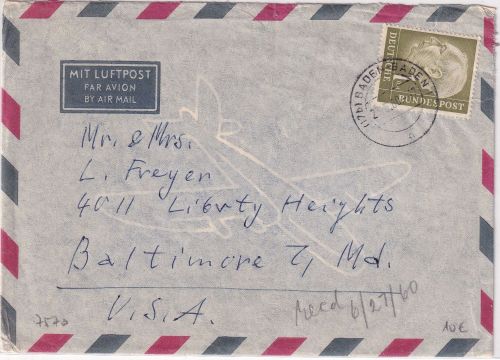 MIT LUFTPOST
PAR AVION
BY AIR MAIL
DEUTSCHE
BUNDESPOST
(17b) BADEN-BADEN
Mr. & Mrs.
L. Freyer
4011 Liberty Heights
Baltimore 7, Md.
U.S.A.
Recd 6/27/60
7570
10€